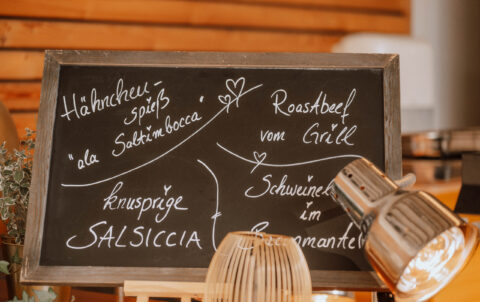 Hähnchen-
spieß
"ala Saltimbocca"
Roastbeef
vom Grill
knusprige
SALSICCIA
im